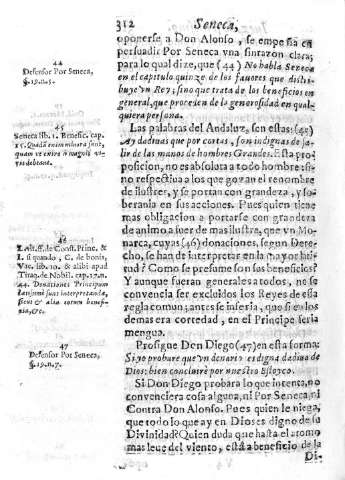 312 Seneca,
oponerse a Don Alonso, se empeña en
persuadir Por Seneca vna sinrazon clara;
para lo qual dize, que (44) No habla Seneca
en el capitulo quinze de los fauores que distri-
buye vn Rey; sino que trata de los beneficios en
general, que proceden de la generosidad en qual-
quiera persona.
Las palabras del Andaluz, son estas: (45)
Ay dadiuas que por cortas, son indignas de sa-
lir de las manos de hombres Grandes. Esta pro-
posicion, no es absoluta a todo hombre si-
no respectiua a los que gozan el renombre
de ilustres, y se portan con grandeza, y so-
berania en sus acciones. Pues quien tiene
mas obligacion a portarse con grandeza
de animo a fuer de mas ilustre, que vn Mo-
narca, cuyas (46) donaciones, segun Dere-
cho, se han de interpretar en la mayor lati-
tud? Como se presume son sus beneficios?
Y aunque fueran generales a todos, no se
convencia ser excluidos los Reyes de esta
regla comun; antes se inferia, que si en los
demas era cortedad, en el Principe seria
mengua.
Prosigue Don Diego (47) en esta forma:
Si yo probare que vn denario es digna dadiua de
Dios; bien concluirè por nuestro Estoyco.
Si Don Diego probara lo que intenta, no
convenciera cosa alguna, ni Por Seneca, ni
Contra Don Alonso. Pues quien le niega,
que todo lo que ay en Dioses digno de su
Divinidad? Quien duda que hasta el atomo
mas leue del viento, està a beneficio de la
Di-
44
Defensor Por Seneca,
45
Seneca lib. 11. Benefic. cap.
15. Quædã enim minora sunt,
quam ve exire à magnis vi-
ris debeant.
46
47
Defensor Por Seneca,
§. 15. n. 7.